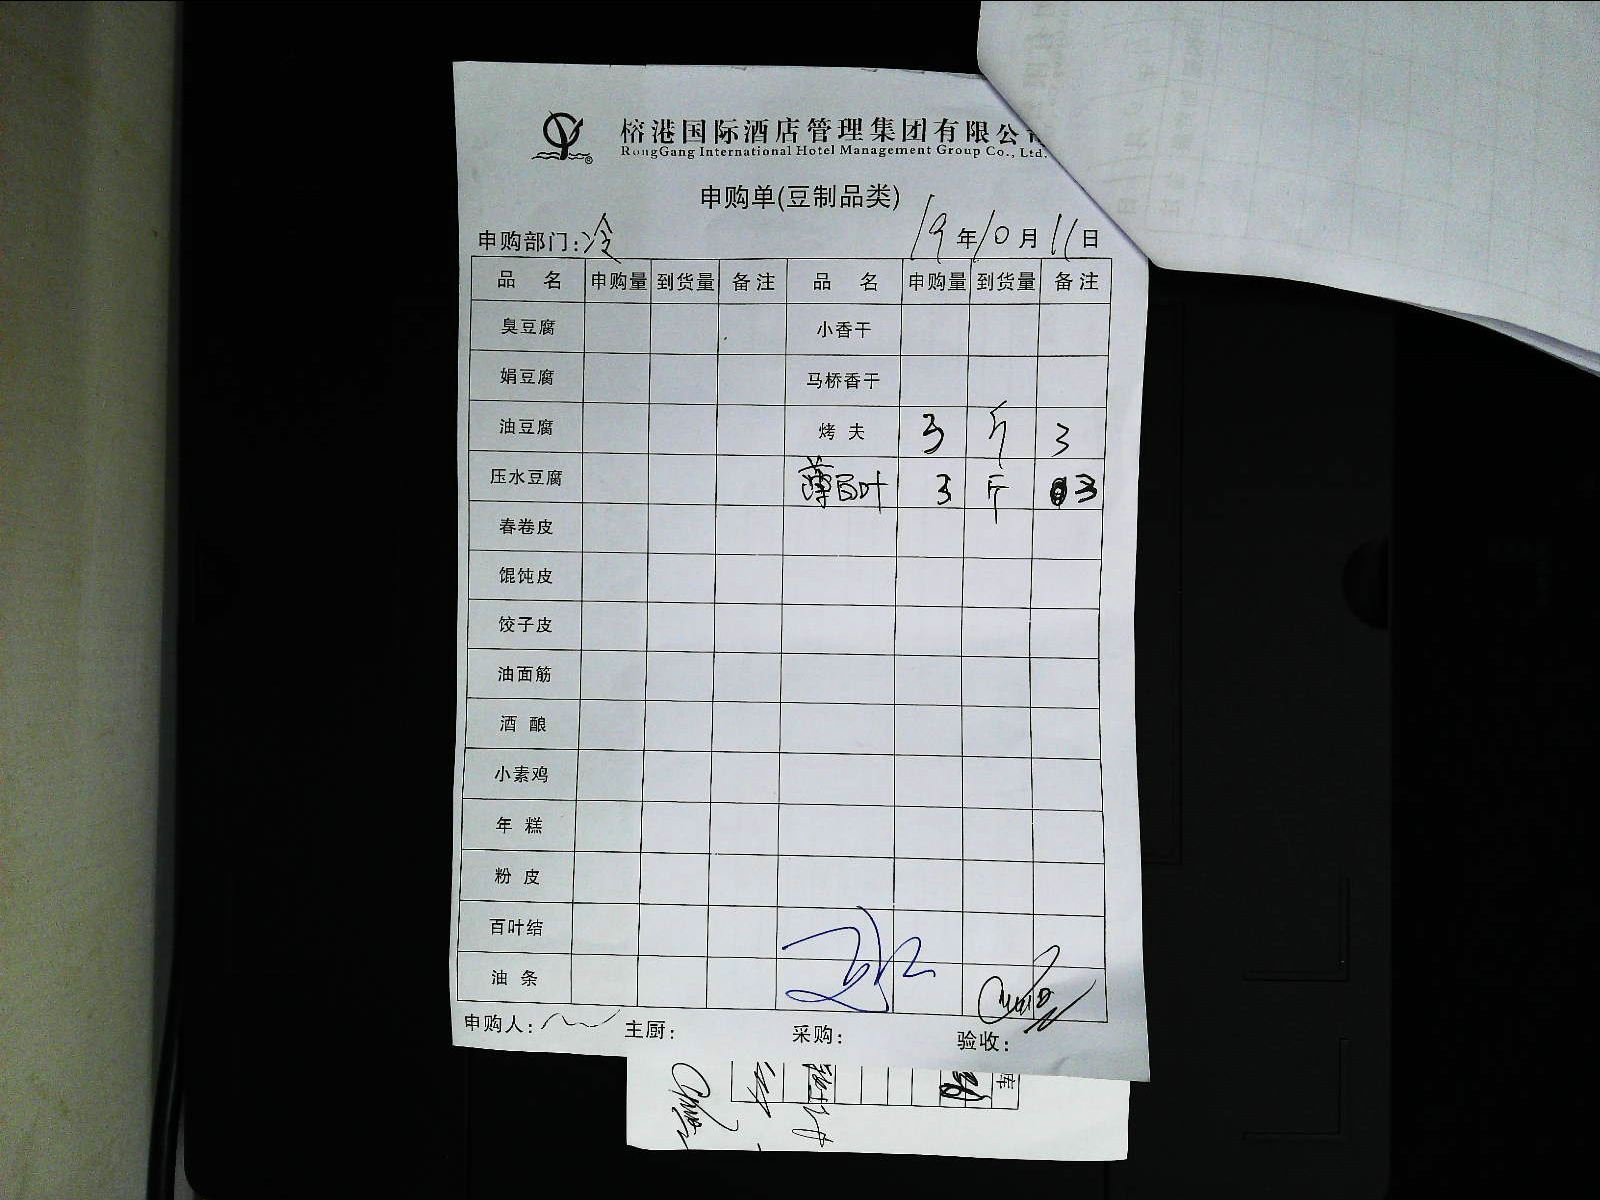 榕港国际酒店管理集团有限公
RongGang International Hotel Management Group Co., Ltd.
申购单(豆制品类)
申购部门:冷 19年10月11日
品 名 申购量 到货量 备注 品 名 申购量 到货量 备注
臭豆腐 小香干
娟豆腐 马桥香干
油豆腐 烤夫 3 斤 3
压水豆腐 薄百叶 3 斤 3
春卷皮
馄饨皮
饺子皮
油面筋
酒酿
小素鸡
年糕
粉皮
百叶结
油条
申购人: 主厨: 采购: 验收: